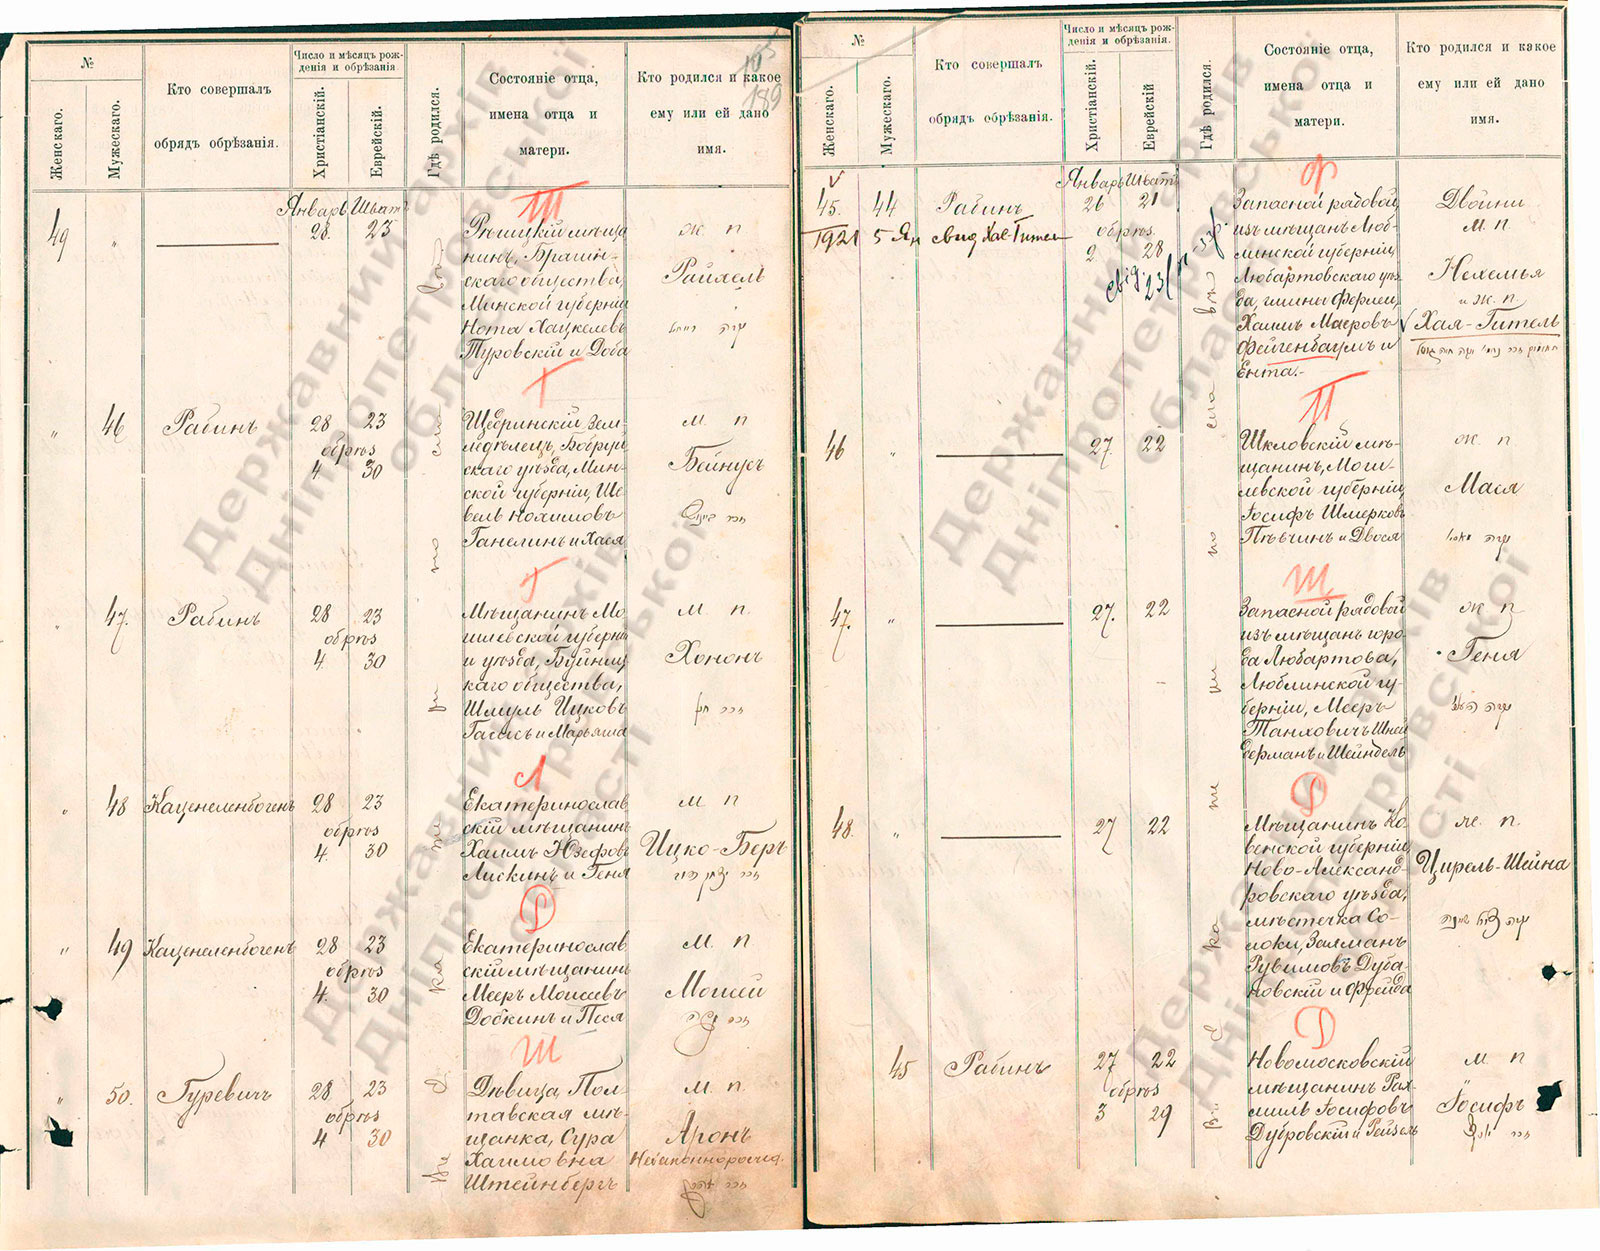 №
Женскаго.
Мужескаго.
Кто совершалъ
обрядъ обрѣзанія.
Число и мѣсяцъ рож-
денія и обрѣзанія.
Христіанскій.
Еврейскій.
Гдѣ родился.
Состояніе отца,
имена отца и
матери.
Кто родился и какое
ему или ей дано
имя.
189
Январь Шватъ
Ш
49 "
28 23
Рѣчицкій мѣща
нинъ, Брагин-
скаго общества,
Минской губерніи
Нота Хацкелевъ
Туровскій и Доба
ж п
Райхель
Г
" 46 Рабинъ
28 23
обрѣз
4 30
Щедринскій, Зем-
ледѣлецъ, Бобруй
скаго уѣзда, Мин-
ской губерніи, Ше
вель Нохимовъ
Ганелинъ и Хася
м п
Бейнусъ
Г
" 47. Рабинъ
28 23
обрѣз
4. 30
Мѣщанинъ Мо
гилевской губерніи
и уѣзда, Буйниц
каго общества,
Шмуль Ицковъ
и Марьяша
м п.
Хононъ
Л
" 48 Каценеленбогенъ
28 23
обрѣз
4. 30
Екатеринослав
скій мѣщанинъ
Хаимъ Юзефовъ
Лискинъ и Геня
м п
Ицко-Беръ
D
" 49 Каценеленбогенъ
28 23
обрѣз
4. 30
Екатеринослав
скій мѣщанинъ
Мееръ Моисеевъ
Добкинъ и Песя
м. п
Моисей
Ш
" 50. Гуревичъ
28 23
обрѣз
4 30
Дѣвица, Пол-
тавская мѣ-
щанка, Сура
Хаимовна
Штейнбергъ
м. п.
Аронъ
№
Женскаго.
Мужескаго.
Кто совершалъ
обрядъ обрѣзанія.
Число и мѣсяцъ рож-
денія и обрѣзанія.
Христіанскій.
Еврейскій
Гдѣ родился.
Состояніе отца,
имена отца и
матери.
Кто родился и какое
ему или ей дано
имя.
Январь Шватъ
Ф
45. 44 Рабинъ
1921 5 Ян
26 21
обрѣз.
2 28
Запасной рядовой
изъ мѣщанъ Люб-
линской губерніи,
Любартовскаго уѣз-
да, гмины Фирлеи,
Хаимъ Маеровъ
Фейгенбаумъ и
Ента.-
Двойни
м. п.
Нехемья
и ж. п.
Хая-Гитель
П
46 "
27. 22
Шкловскій мѣ-
щанинъ, Моги-
левской губерніи,
Іосифъ Шмерковъ
Пѣвчинъ и Двося
ж п
Мася
Ш
47. "
27. 22
Запасной рядовой
изъ мѣщанъ горо-
да Любартова,
Люблинской гу-
берніи, Мееръ
Танховичъ Шней
дерманъ и Шейндель
ж п
Геня
D
48. "
27 22
Мѣщанинъ Ко
венской губерніи
Ново-Александ-
ровскаго уѣзда,
мѣстечка Со-
локи, Залманъ
Рувимовъ Дуба-
новскій и Фрейда
же. п.
Цирель-Шейна
D
45 Рабинъ
27 22
обрѣз
3 29
Новомосковскій
мѣщанинъ Рах-
миль Іосифовъ
Дубровскій и Рейзель
м п
Іосифъ
Державний архів
Дніпропетровської
області